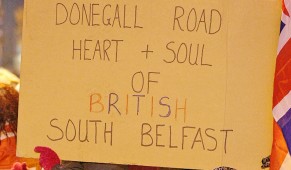 DONEGALL ROAD
HEART + SOUL
OF
BRITISH
SOUTH BELFAST